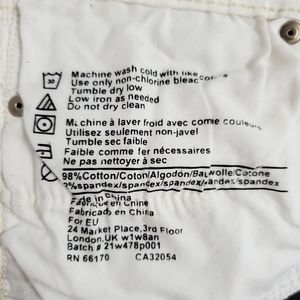 Machine wash cold with like
Use only non-chlorine bleac
Tumble dry low
Low iron as needed
Do not dry clean
30
Machine à laver froid avec come couleurs
Utilisez seulement non-javel
Tumble sec faible
Faible comme fer nécessaires
Ne pas nettoyer à sec
98%Cotton/Coton/Algodón/Baumwolle/Cotone
2%spandex/spandex/spandex/spandex/spandex
Made in China
Fabriqué en Chine
Fabricado en China
For EU
24 Market Place,3rd Floor
London,UK w1w8an
Batch # 21w478p001
RN 66170 CA32054